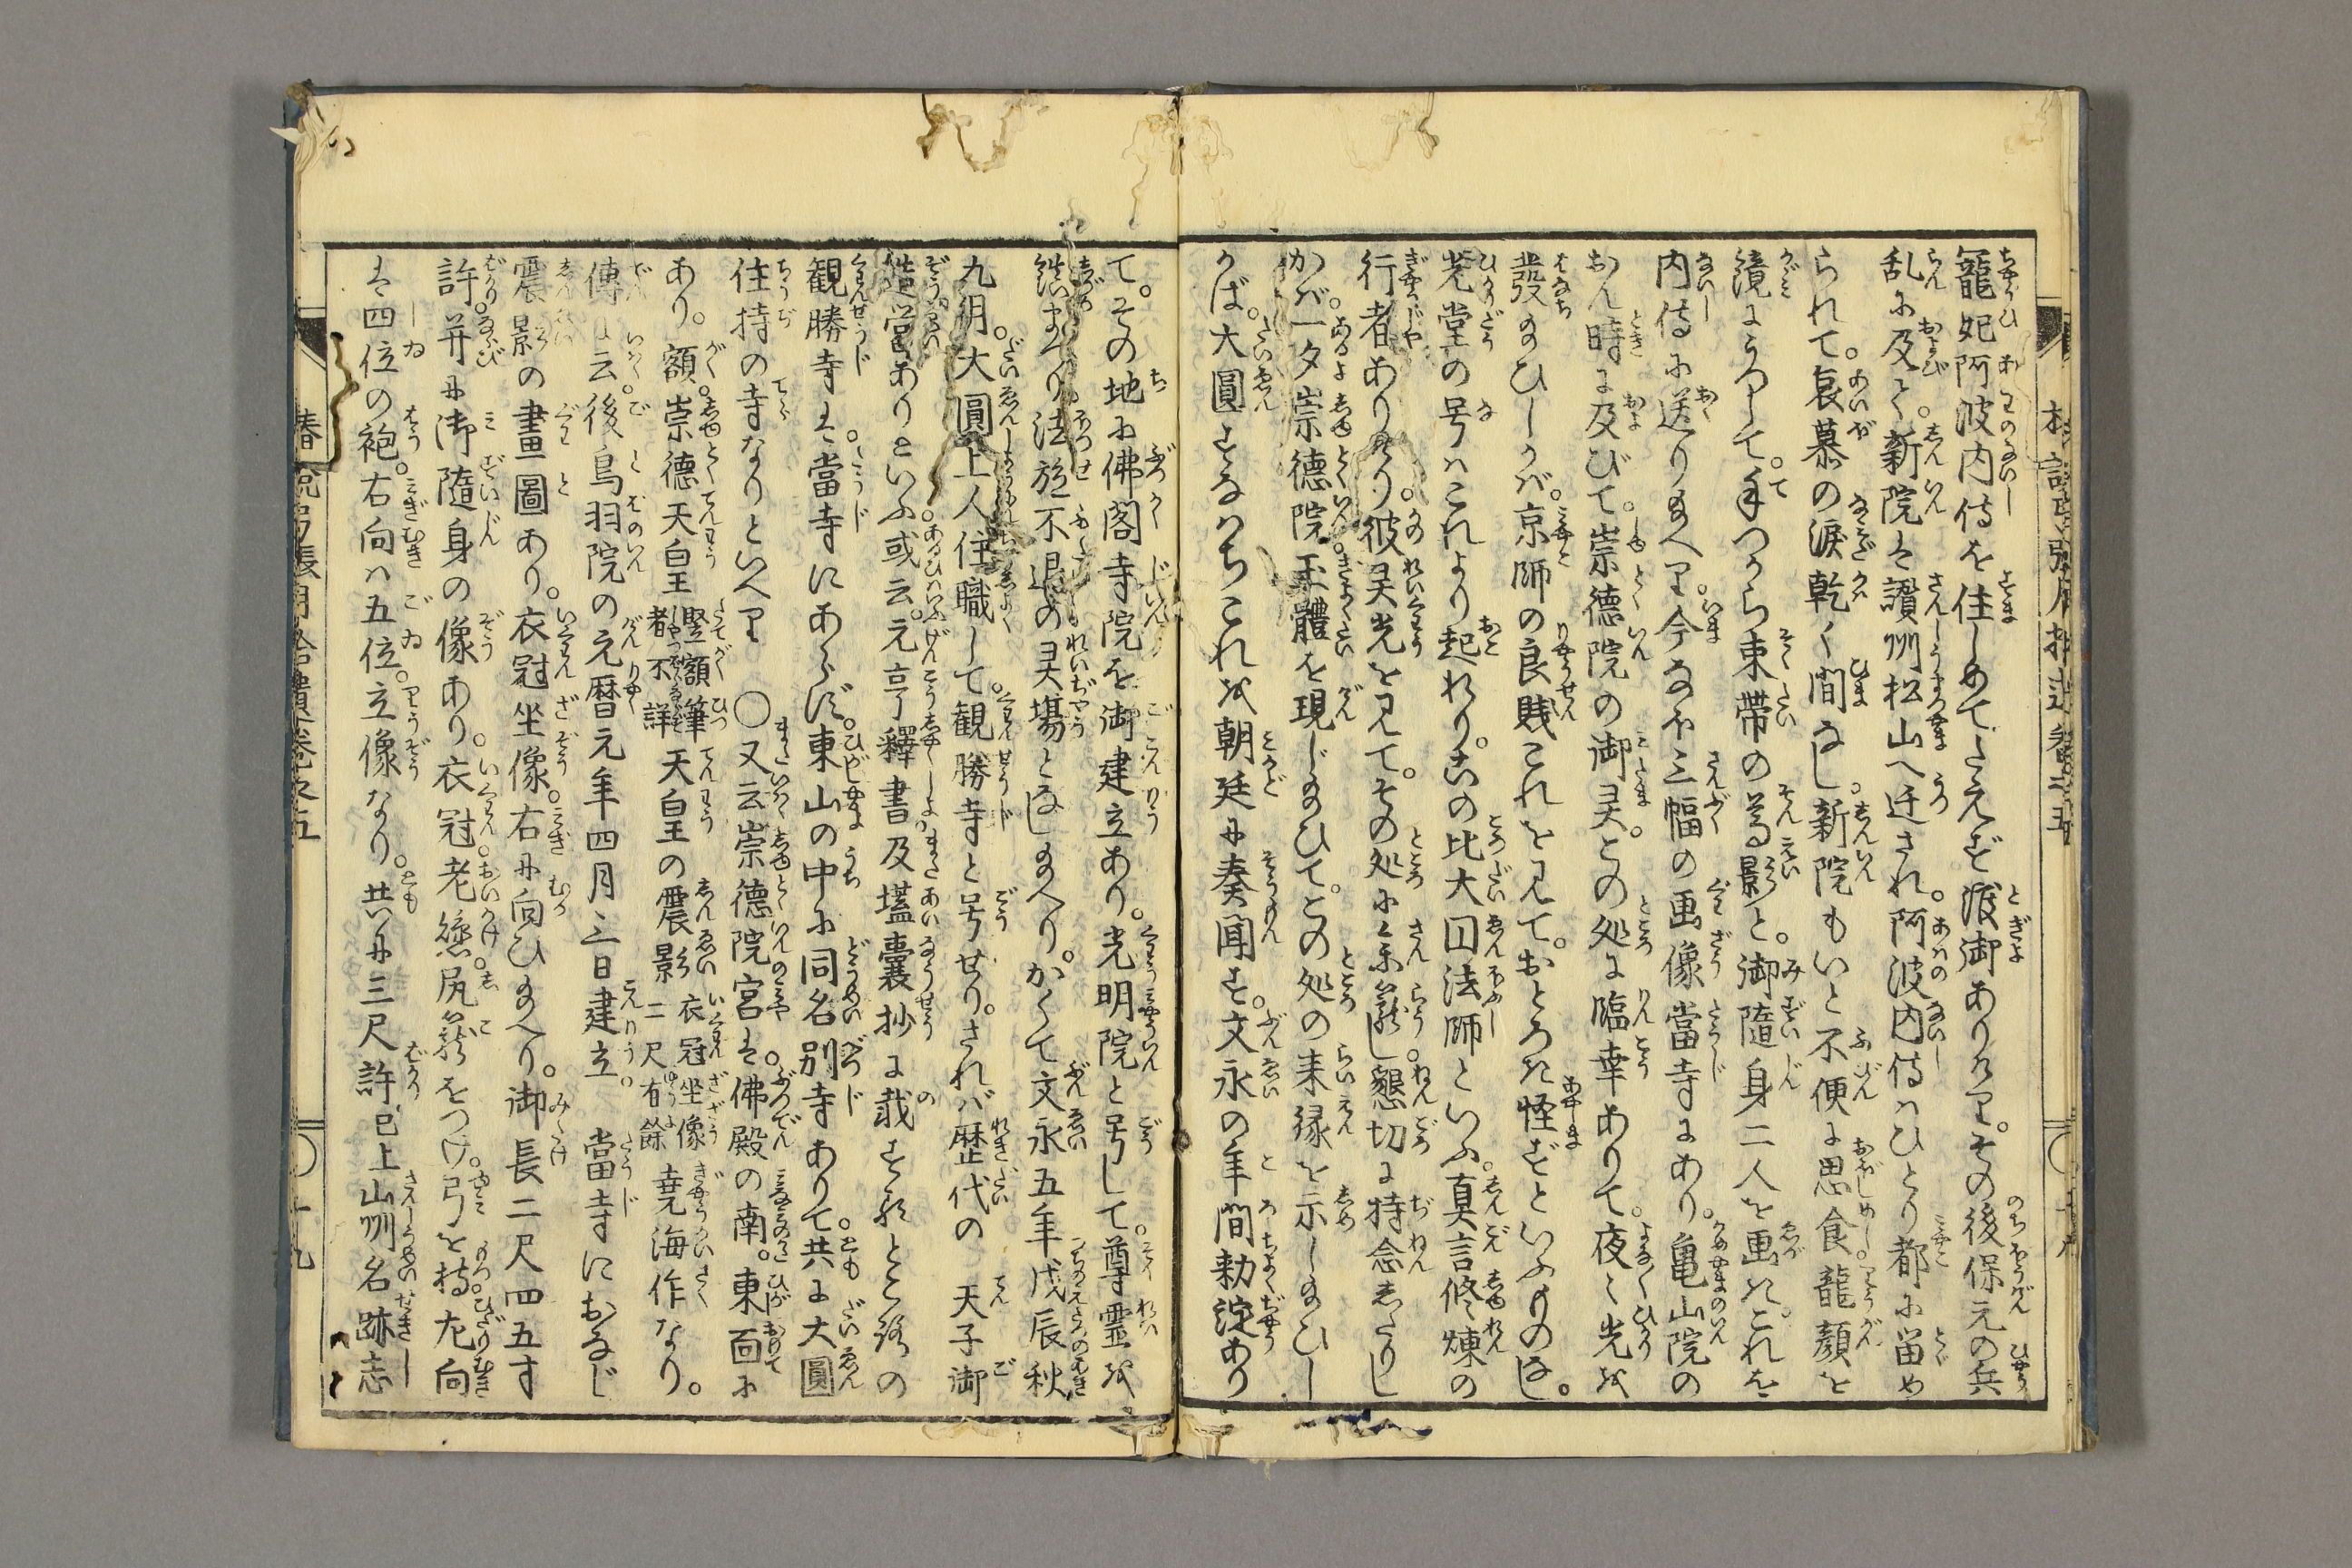 寵妃阿波内侍を住しめてたえず渡御ありけり。その後保元の兵
乱に及て。新院は讃州松山へ迁され。阿波内侍はひとり都に留め
られて。哀慕の涙乾く間なし。新院もいと不便に思食龍顔を
鏡にうつして。手つから束帯の尊影と。御随身二人を画き。これを
内侍に送り給へり。今なほ三幅の画像當寺にあり。亀山院の
おん時に及びて。崇徳院の御灵。この処に臨幸ありて。夜〻光を
發給ひしかば。京師の良賤これを見て。おとろき怪ずといふものなし。
光堂の号はこれより起れり。古の比大円法師といふ。真言修煉の
行者ありけり。彼灵光を見て。その処に参籠し懇切に持念したりし
かば。一夕崇徳院玉體を現じ給ひて。この処の来縁を示し給ひし
かば。大圓すなはちこれを朝廷に奏聞す。文永の年間勅諚あり
て。その地に佛閣寺院を御建立あり。光明院と号して。尊霊を
鎮まつり。法施不退の灵塲となし給へり。かくて文永五年戊辰秋
九月。大圓上人住職して。観勝寺と号せり。されば歴代の　天子御
造営ありといふ。或云。元亨釋書及壒嚢抄に載する所の
観勝寺は。當寺にあらず。東山の中に同名別寺ありて。共に大圓
住持の寺なりといへり　〇又云崇徳院宮は。佛殿の南。東面に
あり。額。崇徳天皇 竪額筆者不詳 天皇の震影 衣冠坐像二尺有餘 堯海作なり。
傳に云。後鳥羽院の元暦元年四月三日建立。　當寺におなじ
震影の畫圖あり。衣冠坐像。右に向ひ給へり。御長二尺四五寸
許。并に御隨身の像あり。衣冠老懸。尻籠をつけ。弓を持。左向
は四位の袍。右向は五位。立像なり。共に三尺許 已上山州名跡志